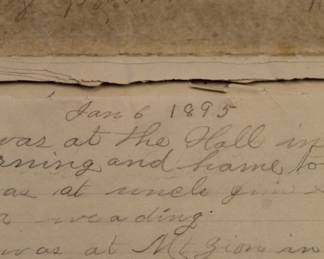 Jan 6 1895
was at the Hall in
rning and home to
as at uncle
wa ading.
was at Mt Zion in